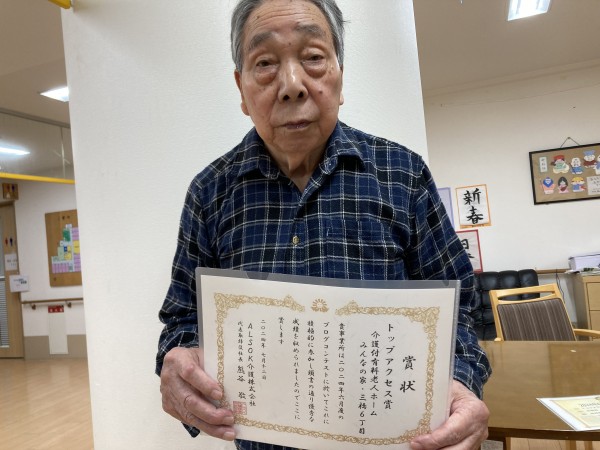 賞状
トップアクセス賞
介護付有料老人ホーム
みんなの家・三橋6丁目
貴事業所は二〇二四年六月度の
ブログコンテストに於いてこれに
積極的に参加し頭書の通り優秀な
成績を収められましたのでここに
賞します
二〇二四年 七月十二日
ALSOK介護株式会社
代表取締役社長 熊谷 敬
新春